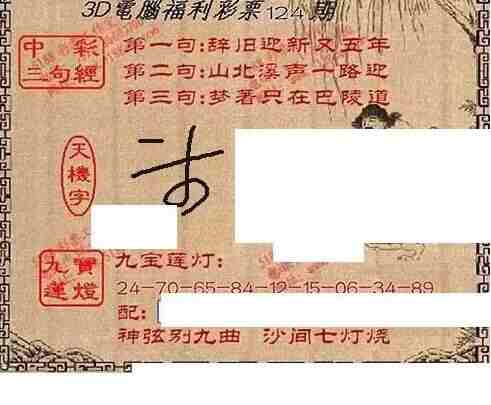 3D電腦福利彩票124期
中彩三句經
第一句:辞旧迎新又五年
第二句:山北溪声一路迎
第三句:梦著只在巴陵道
天機字
九寶蓮燈
九宝莲灯:
24-70-65-84-12-15-06-34-89
配:
神弦别九曲 沙间七灯烧